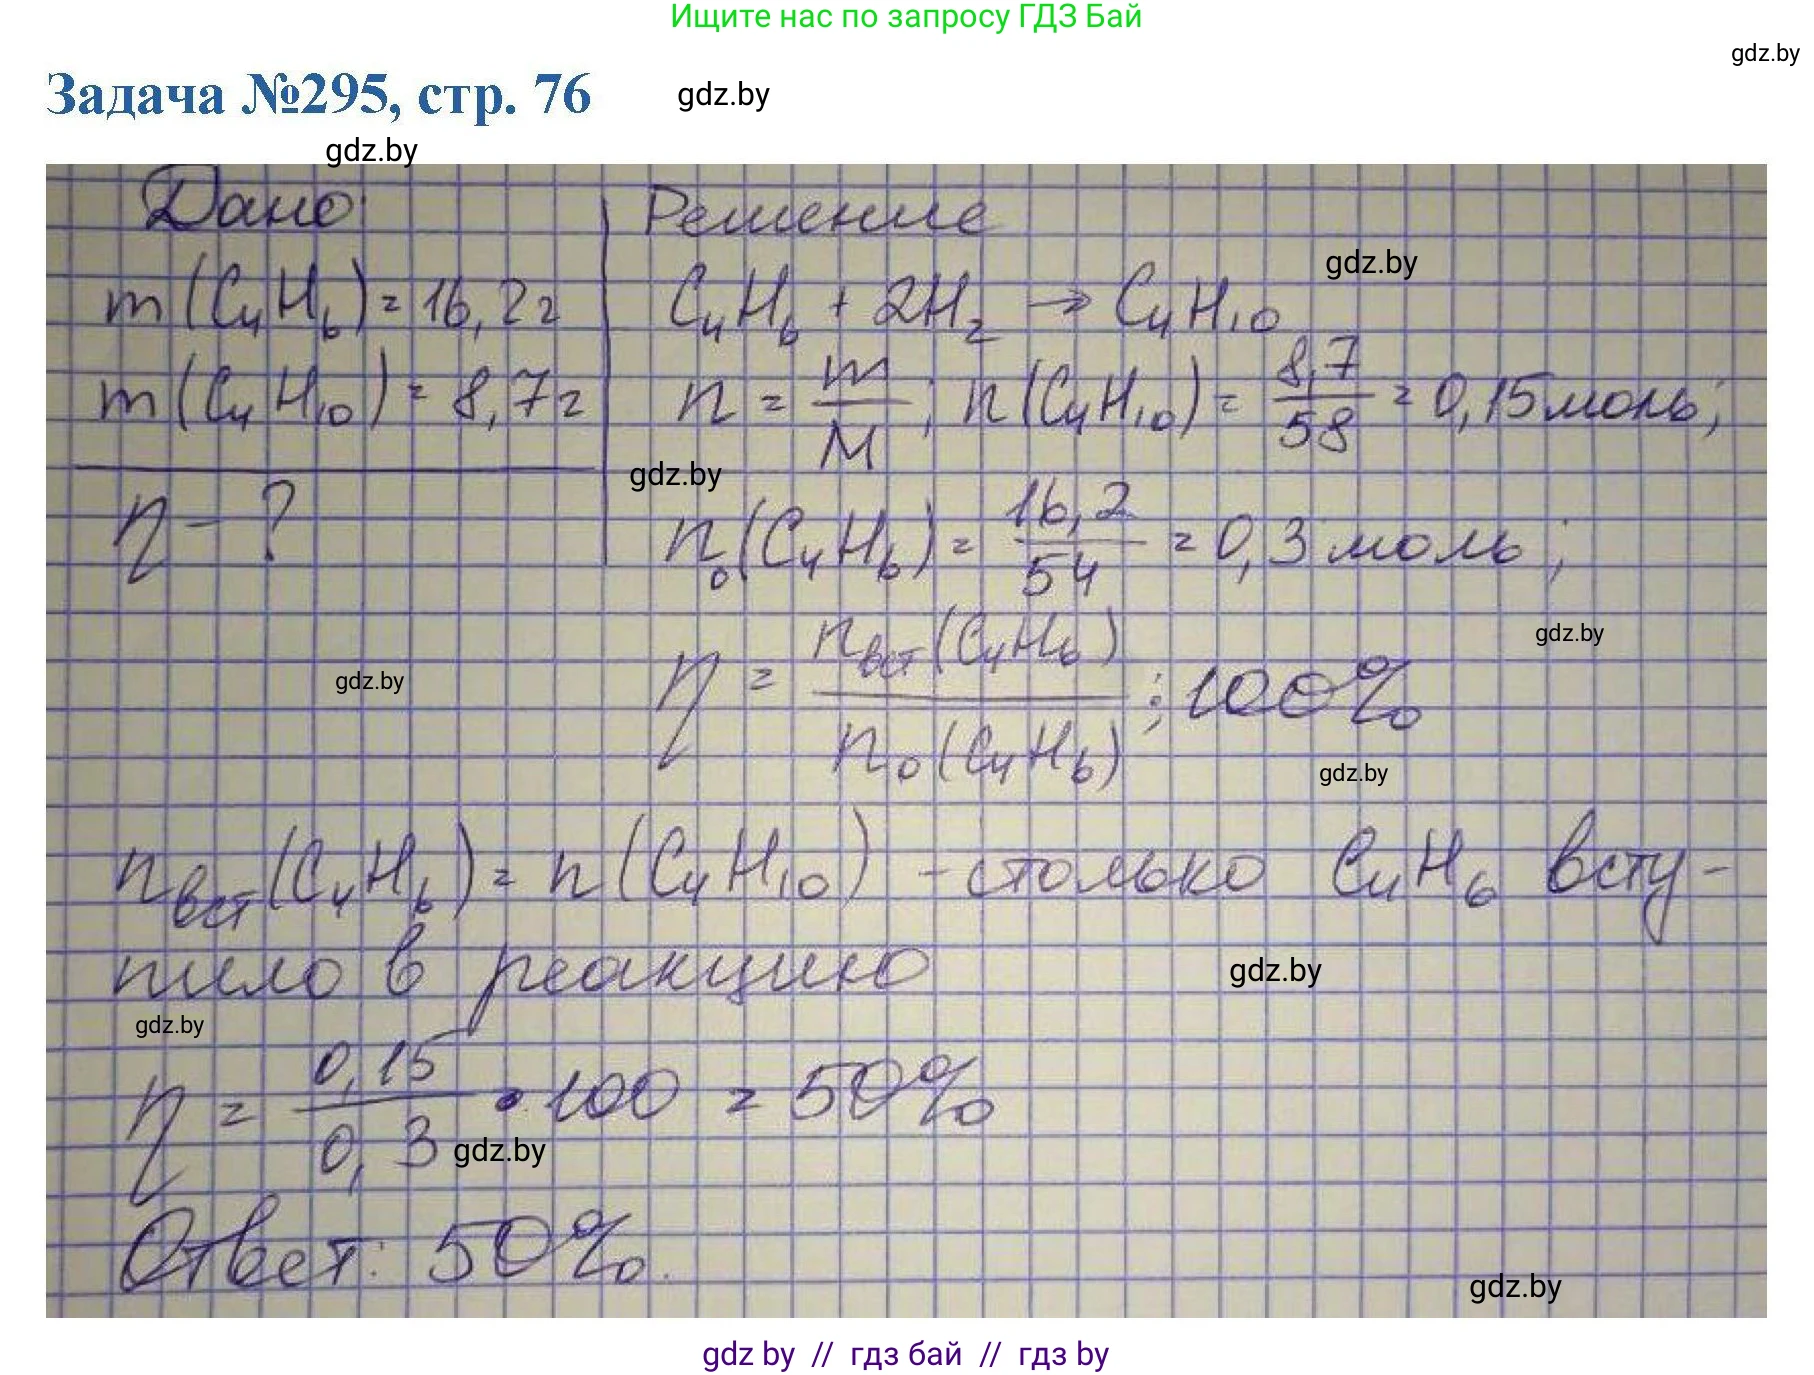 Ищите нас по запросу ГДЗ Бай
gdz.by
Задача №295, стр. 76
gdz.by
gdz.by
Дано:
Решение
gdz.by
m(C₄H₆) = 16,2г
C₄H₆ + 2H₂ → C₄H₁₀
m(C₄H₁₀) = 8,7г
n = m/M; n(C₄H₁₀) = 8,7/58 = 0,15моль;
gdz.by
η - ?
n₀(C₄H₆) = 16,2/54 = 0,3 моль;
gdz.by
gdz.by
η = nвст(C₄H₆)/n₀(C₄H₆) ; 100%
gdz.by
nвст(C₄H₆) = n(C₄H₁₀) - столько C₄H₆ всту-
пило в реакцию
gdz.by
gdz.by
η = 0,15/0,3 · 100 = 50%
gdz.by
Ответ: 50%.
gdz.by
gdz by // гдз бай // гдз by